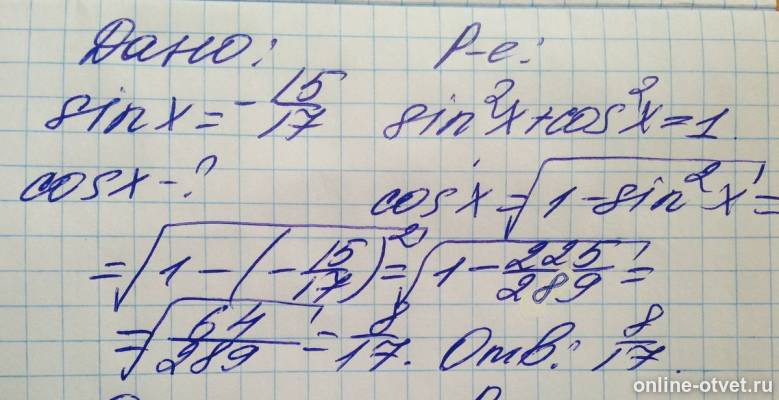 Дано: Р-е:
sin x = -15/17 sin²x + cos²x = 1.
cos x - ? cos x = √(1 - sin²x) =
= √(1 - (-15/17)²) = √(1 - 225/289) =
= √(64/289) = 8/17. Отв.: 8/17.
online-otvet.ru